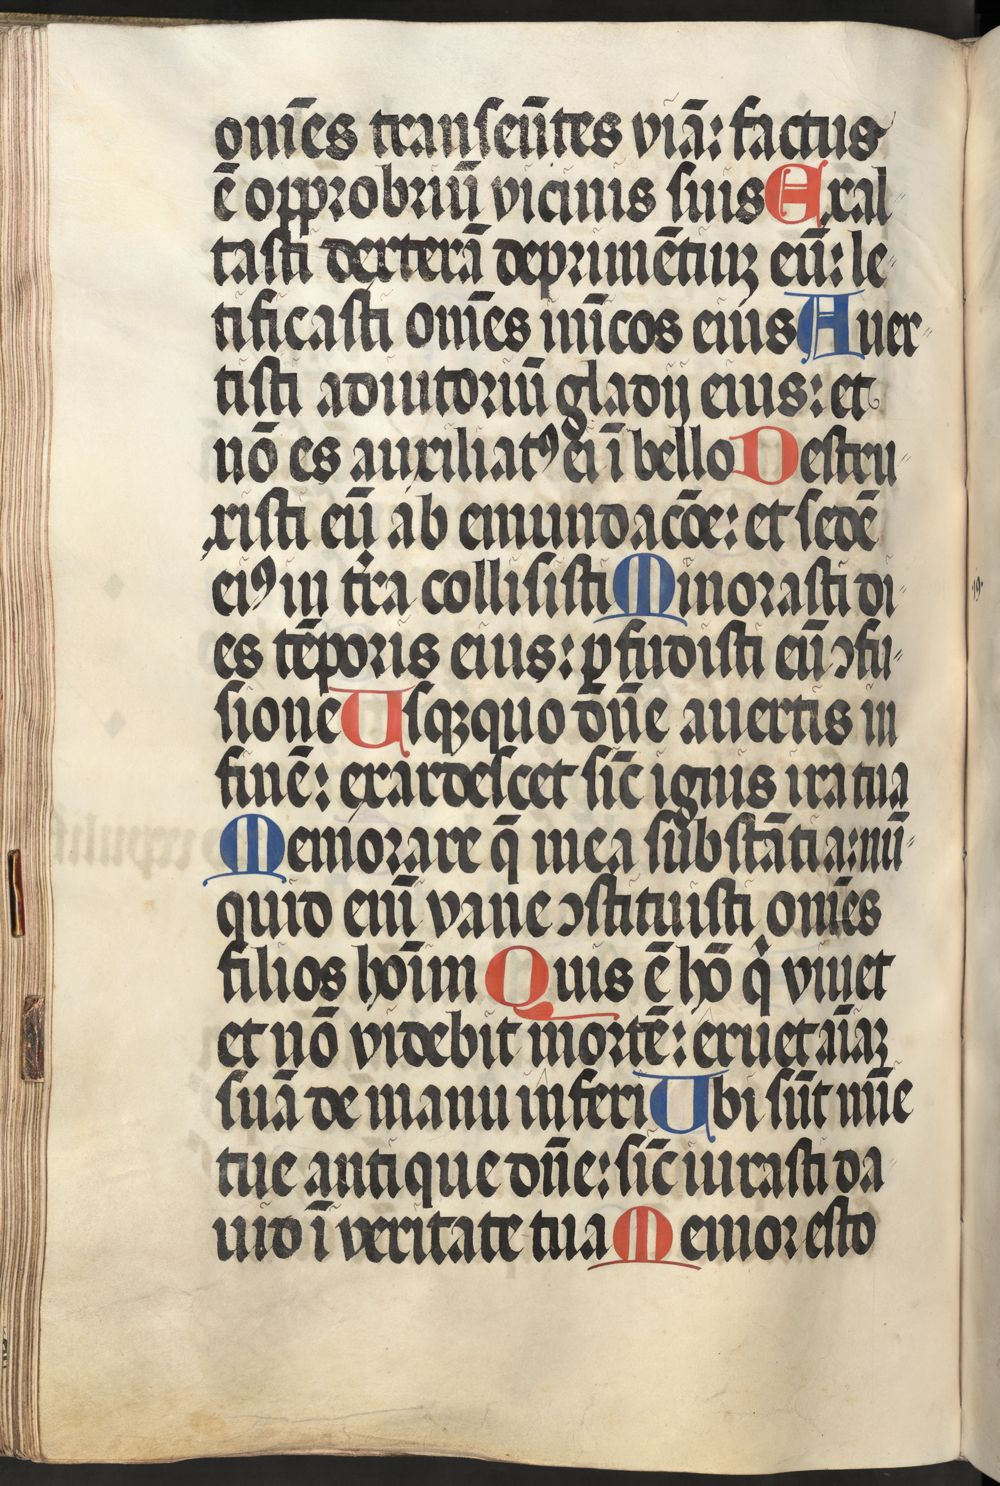 om̄es transeūtes viā: factus
ē opprobriū vicinis suis Exal
tasti dexterā deprimētiuꝫ eū: le
tificasti om̄es inīcos eius Auer
tisti adiutoriū gladij eius: et
nō es auxiliatꝰ ei ī bello Destru
xisti eū ab emundacōe: et sedē
eiꝰ in tr̄a collisisti Minorasti di
es tēporis eius: ꝑfudisti eū ↄfu
sione Usqꝫquo dn̄e auertis in
finē: exardescet sic̄ ignis ira tua
Memorare q̄ mea substātia: nū
quid eni̅ vane ↄstituisti om̄es
filios hoīm Quis ē hō qͥ viuet
et nō videbit mortē: eruet aīaꝫ
suā de manu inferi Ubi sūt mīe
tue antique dn̄e: sic̄ iurasti da
uid ī veritate tua Memor esto